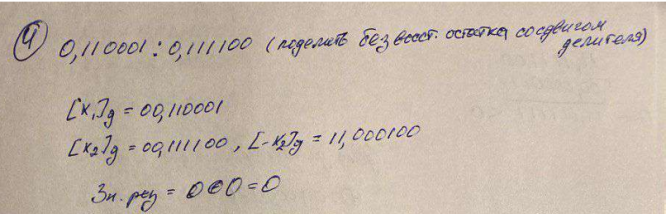 ④ 0,110001 : 0,111100 (поделить без восст. остатка со сдвигом
делителя)
[x₁]g = 00,110001
[x₂]g = 00,111100, [-x₂]g = 11,000100
Зн. рез = 0⊕0 = 0